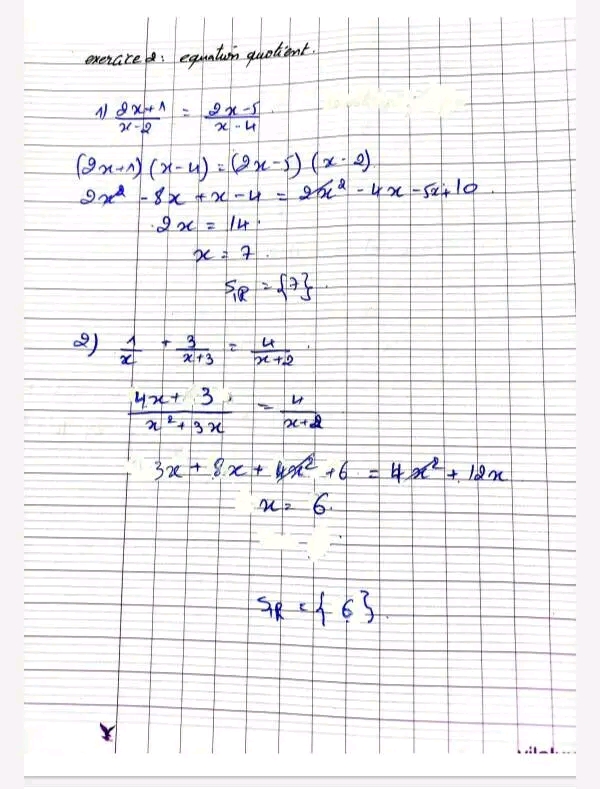 exercice 2: equation quotient.
1) (2x+1)/(x-2) = (2x-5)/(x-4)
(2x+1)(x-4)=(2x-5)(x-2)
2x² -8x+x-4 = 2x² -4x-5x+10
2x = 14.
x = 7.
S_IR = {7}
2) 1/x + 3/(x+3) = 4/(x+2).
(4x+3)/(x²+3x) = 4/(x+2)
3x + 8x + 4x² +6 = 4x² + 12x
x = 6.
S_IR = { 6 }.